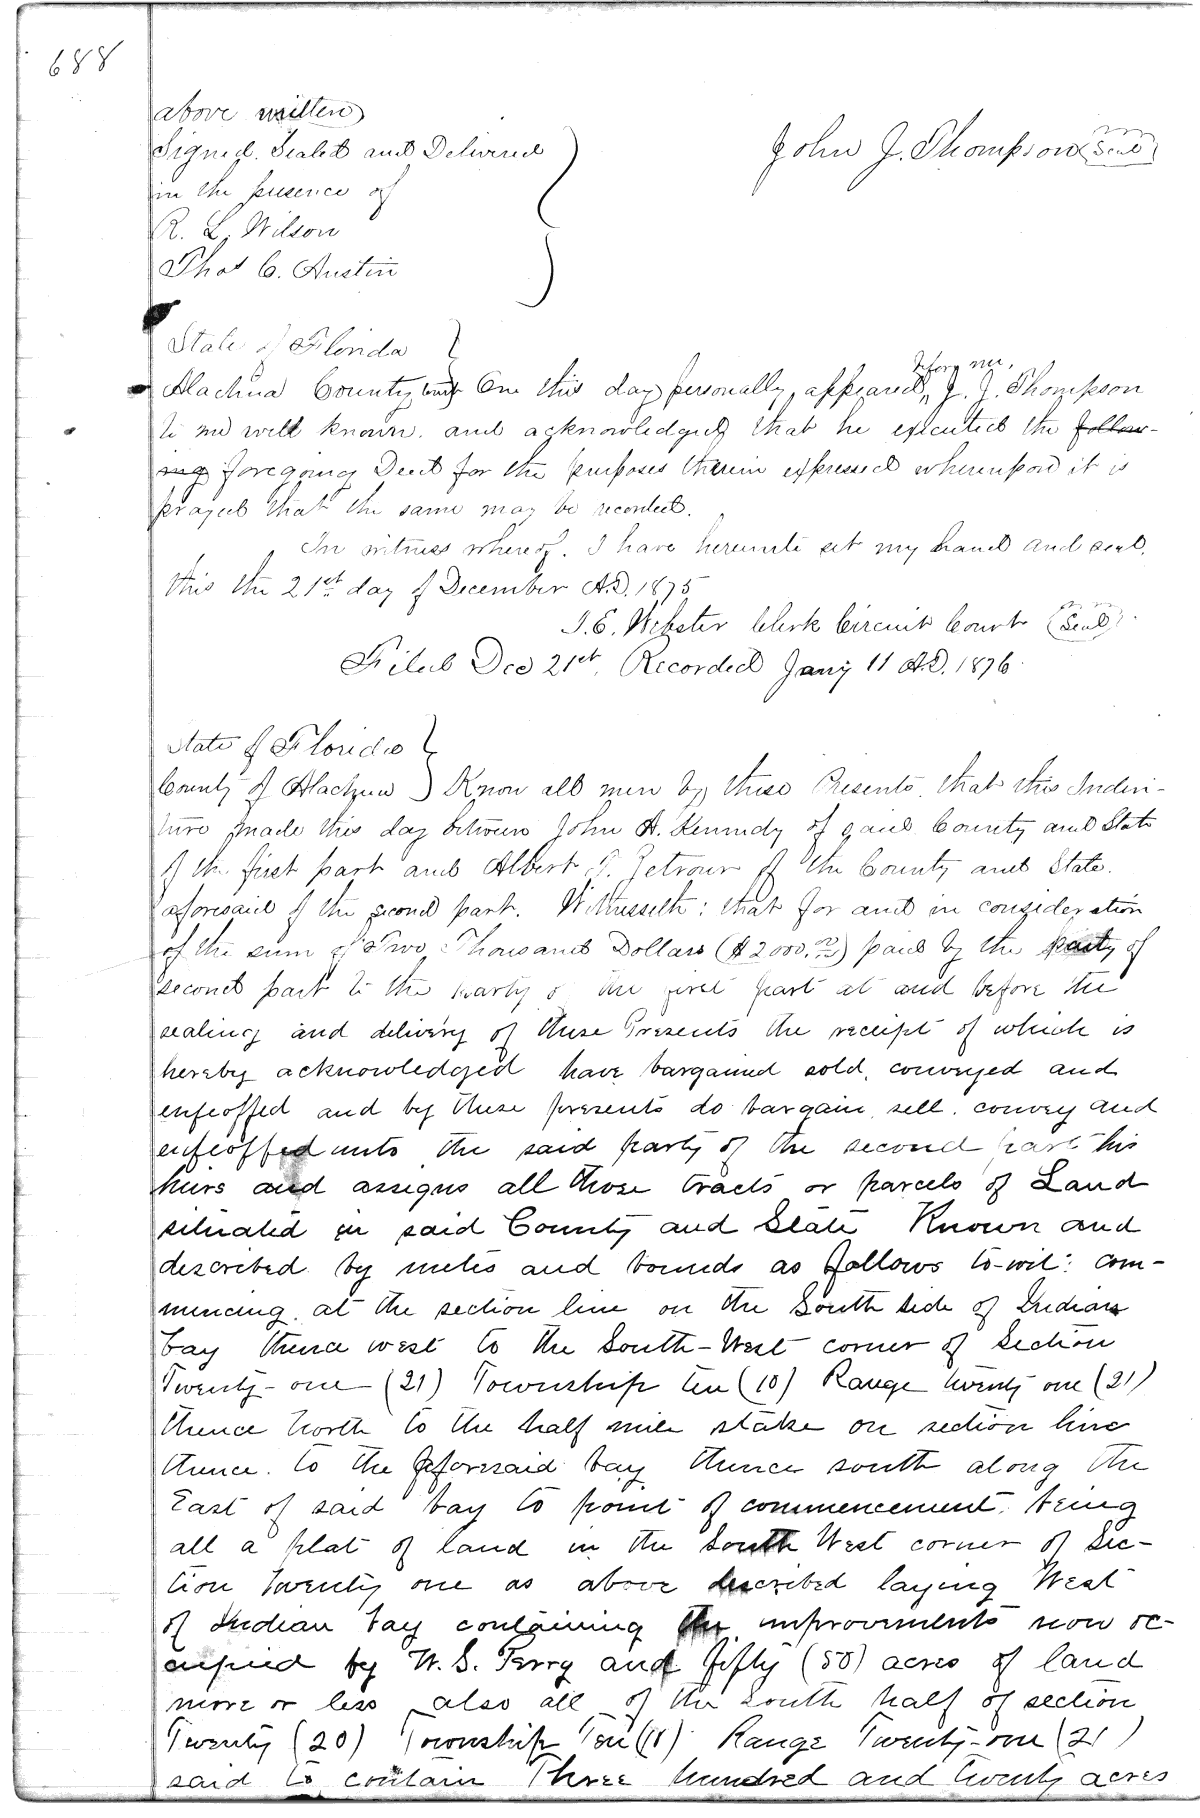 688
above written
Signed, Sealed and Delivered
in the presence of
R. L. Wilson
Thos C. Austin
John J. Thompson (Seal)
State of Florida
before me,
Alachua County On this day personally appeared, J. J. Thompson
to me well known, and acknowledged that he executed the follow-
ing foregoing Deed for the purposes therein expressed whereupon it is
prayed that the same may be recorded.
In witness whereof, I have hereunto set my hand and seal,
this the 21st day of December A.D. 1875
J. E. Webster Clerk Circuit Court (Seal)
Filed Dec 21st, Recorded Jany 11 A.D. 1876
State of Florida
County of Alachua Know all men by these Presents, that this Inden-
ture made this day between John A. Kennedy of said County and State
of the first part and Albert Zetrouer of the County and State
aforesaid of the second part. Witnesseth: that for and in consideration
of the sum of Two Thousand Dollars ($2000.) paid by the party of
second part to the party of the first part at and before the
sealing and delivery of these Presents the receipt of which is
hereby acknowledged have bargained sold, conveyed and
enfeoffed and by these presents do bargain, sell, convey and
enfeoffed unto the said party of the second part his
heirs and assigns all those tracts or parcels of Land
situated in said County and State Known and
described by metes and bounds as follows to-wit: com-
mencing at the section line on the South side of Indian
bay thence west to the South-West corner of Section
Twenty-one (21) Township ten (10) Range twenty one (21)
thence North to the half mile stake on section line
thence to the aforesaid bay thence south along the
East of said bay to point of commencement, being
all a plat of land in the South West corner of Sec-
tion twenty one as above described laying West
of Indian bay containing the improvements now oc-
cupied by W. S. Perry and fifty (50) acres of land
more or less, also all of the South half of section
Twenty (20) Township Ten (10) Range Twenty-one (21)
said to contain Three hundred and twenty acres